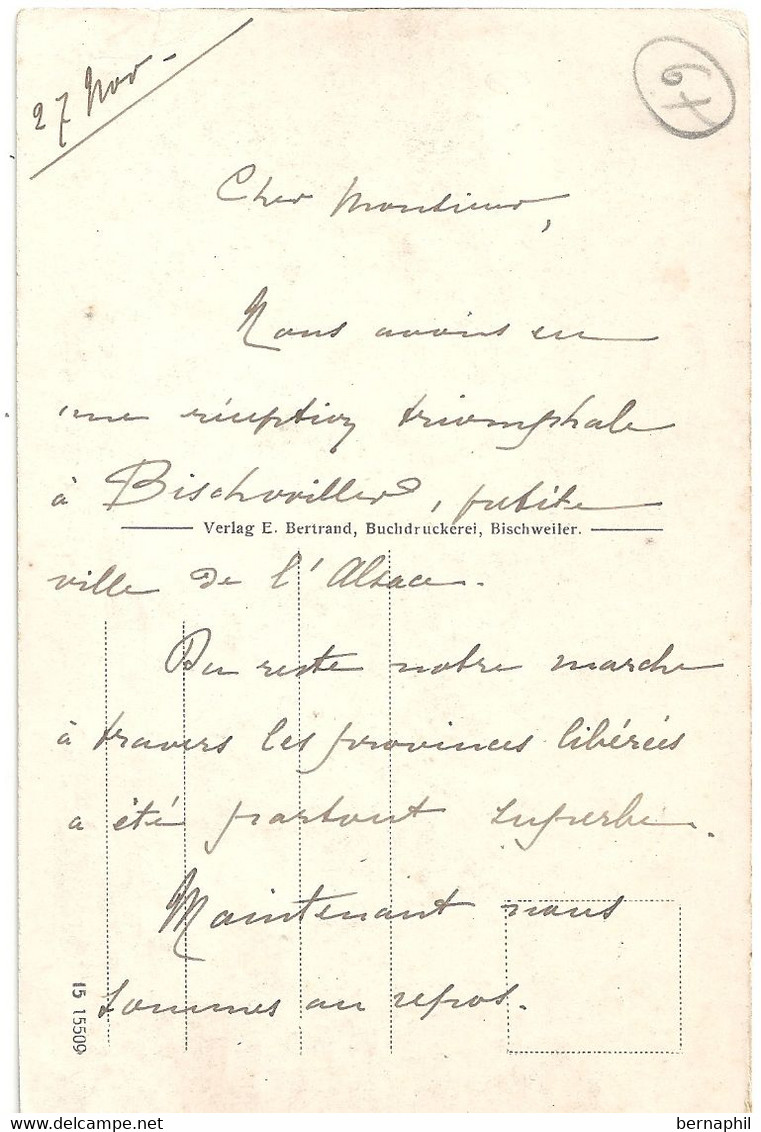 27 Nov -
67
Cher Monsieur,
Nous avons eu
une réception triomphale
à Bischwiller, petite
Verlag E. Bertrand, Buchdruckerei, Bischweiler.
ville de l'Alsace.
Du reste notre marche
à travers les provinces libérées
a été partout superbe.
Maintenant nous
sommes au repos.
15 15509
delcampe.net
bernaphil